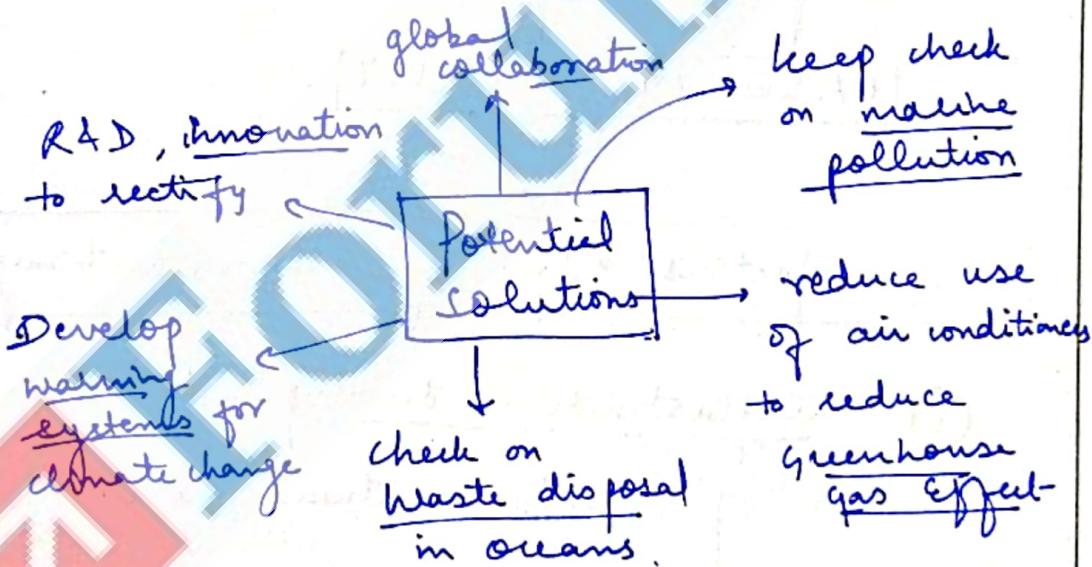 global
collaboration
keep check
on marine
pollution
R&D, innovation
to rectify
Potential
solutions
reduce use
of air conditioners
to reduce
greenhouse
gas effect
Develop
warning
systems for
climate change
check on
waste disposal
in oceans.
Forum